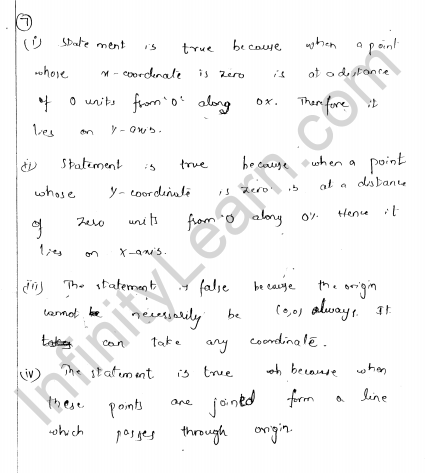 7
(i) statement is true because when a point
whose x-coordinate is zero is at a distance
of 0 units from 'O' along OX. Therefore it
lies on Y-axis.
(ii) Statement is true because when a point
whose Y-coordinate is zero is at a distance
of zero units from 'O along OY. Hence it
lies on X-axis.
(iii) The statement is false because the origin
cannot be necessarily be (0,0) always. It
can take any coordinate.
(iv) The statement is true because when
these points are joined form a line
which passes through origin.
InfinityLearn.com